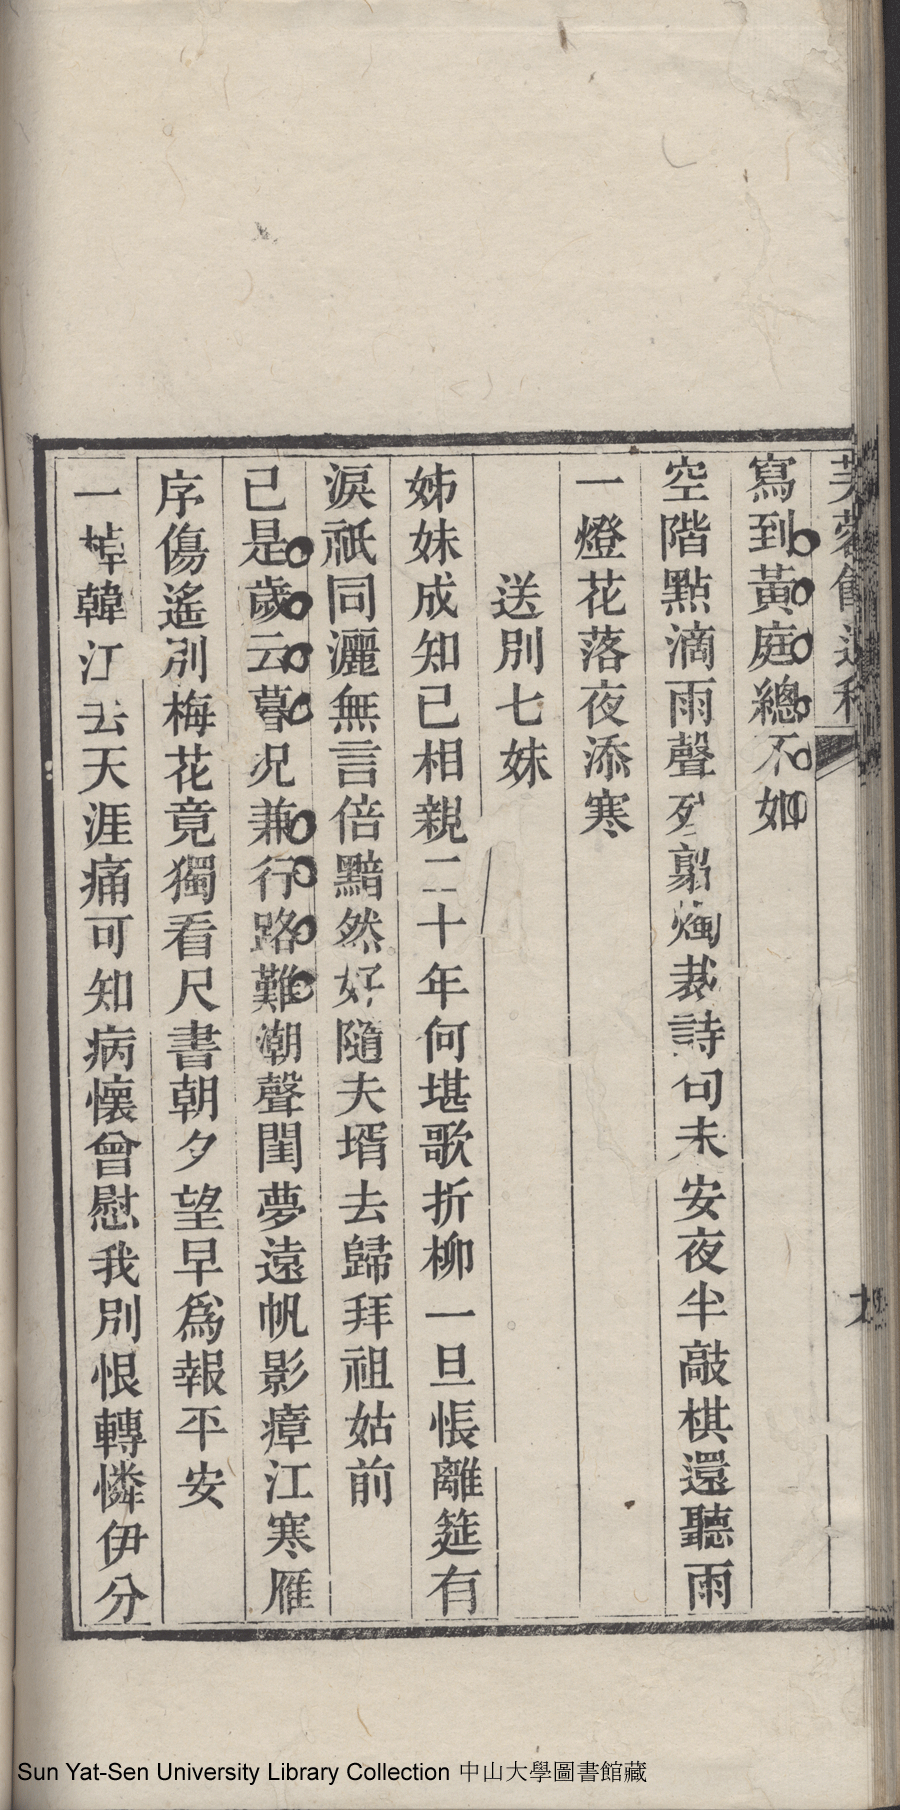 寫到黃庭總不如
空階點滴雨聲殘剪燭裁詩句未安夜半敲棋還聽雨
一燈花落夜添寒
送別七妹
姊妹成知已相親二十年何堪歌折柳一旦悵離筵有
淚祇同灑無言倍黯然好隨夫壻去歸拜祖姑前
已是歲云暮况兼行路難潮聲閨夢遠帆影瘴江寒雁
序傷遙別梅花竟獨看尺書朝夕望早爲報平安
一棹韓江去天涯痛可知病懷曾慰我別恨轉憐伊分
Sun Yat-Sen University Library Collection 中山大學圖書館藏